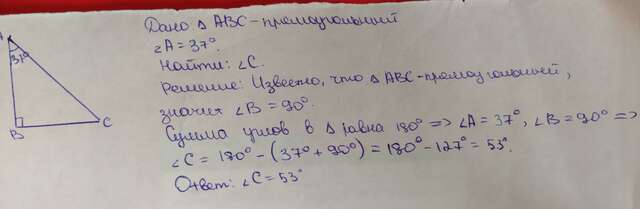 Дано Δ ABC - прямоугольный
∠A = 37°.
Найти: ∠C.
Решение: Известно, что Δ ABC - прямоугольный,
значит ∠B = 90°.
Сумма углов в Δ равна 180° => ∠A = 37°, ∠B = 90° =>
∠C = 180° - (37° + 90°) = 180° - 127° = 53°.
Ответ: ∠C = 53°
A
37°
B
C